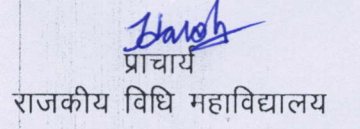 प्राचार्य
राजकीय विधि महाविद्यालय